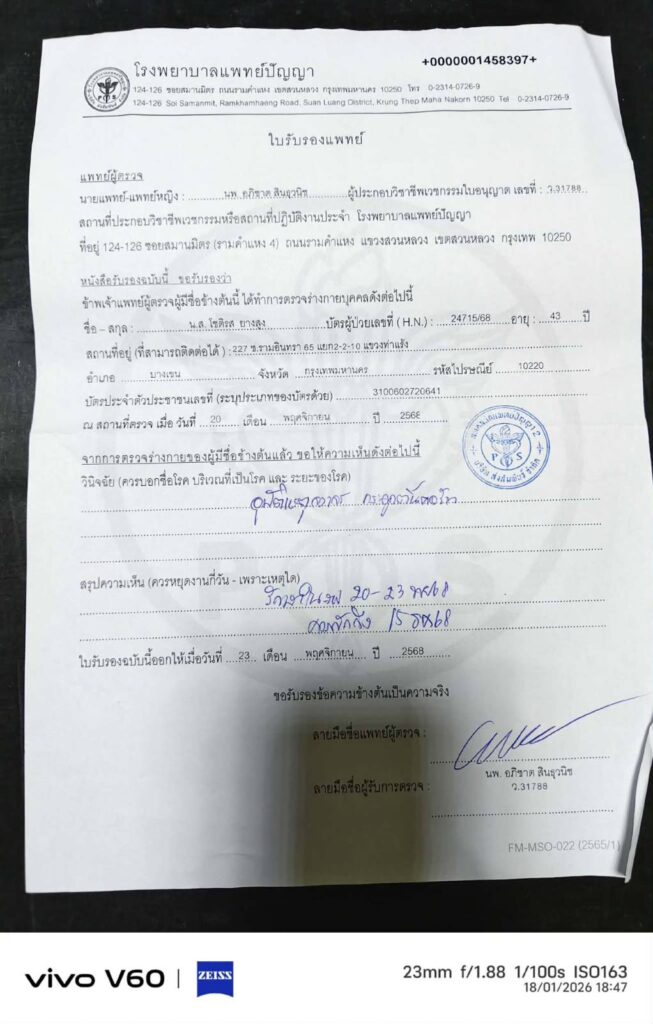 +0000001458397+
โรงพยาบาลแพทย์ปัญญา
124-126 ซอยสมานมิตร ถนนรามคำแหง เขตสวนหลวง กรุงเทพมหานคร 10250 โทร 0-2314-0726-9
124-126 Soi Samanmit, Ramkhamhaeng Road, Suan Luang District, Krung Thep Maha Nakorn 10250 Tel 0-2314-0726-9
ใบรับรองแพทย์
แพทย์ผู้ตรวจ
นายแพทย์-แพทย์หญิง : นพ. อภิชาต สินธุวนิช ผู้ประกอบวิชาชีพเวชกรรมใบอนุญาต เลขที่ : ว.31788
สถานที่ประกอบวิชาชีพเวชกรรมหรือสถานที่ปฏิบัติงานประจำ โรงพยาบาลแพทย์ปัญญา
ที่อยู่ 124-126 ซอยสมานมิตร (รามคำแหง 4) ถนนรามคำแหง แขวงสวนหลวง เขตสวนหลวง กรุงเทพ 10250
หนังสือรับรองฉบับนี้ ขอรับรองว่า
ข้าพเจ้าแพทย์ผู้ตรวจผู้มีชื่อข้างต้นนี้ ได้ทำการตรวจร่างกายบุคคลดังต่อไปนี้
ชื่อ – สกุล : น.ส. โชติรส ยางสูง บัตรผู้ป่วยเลขที่ (H.N.) : 24715/68 อายุ : 43 ปี
สถานที่อยู่ (ที่สามารถติดต่อได้) : 227 ซ.รามอินทรา 65 แยก2-2-10 แขวงท่าแร้ง
อำเภอ บางเขน จังหวัด กรุงเทพมหานคร รหัสไปรษณีย์ 10220
บัตรประจำตัวประชาชนเลขที่ (ระบุประเภทของบัตรด้วย) 3100602720641
ณ สถานที่ตรวจ เมื่อ วันที่ 20 เดือน พฤศจิกายน ปี 2568
จากการตรวจร่างกายของผู้มีชื่อข้างต้นแล้ว ขอให้ความเห็นดังต่อไปนี้
วินิจฉัย (ควรบอกชื่อโรค บริเวณที่เป็นโรค และ ระยะของโรค)
สรุปความเห็น (ควรหยุดงานกี่วัน - เพราะเหตุใด)
20 - 23 พย68
ควรพักถึง 15 ธค68
ใบรับรองฉบับนี้ออกให้เมื่อวันที่ 23 เดือน พฤศจิกายน ปี 2568
ขอรับรองข้อความข้างต้นเป็นความจริง
ลายมือชื่อแพทย์ผู้ตรวจ :
นพ. อภิชาต สินธุวนิช
ว.31788
ลายมือชื่อผู้รับการตรวจ :
FM-MSO-022 (2565/1)
vivo V60 | ZEISS
23mm f/1.88 1/100s ISO163
18/01/2026 18:47